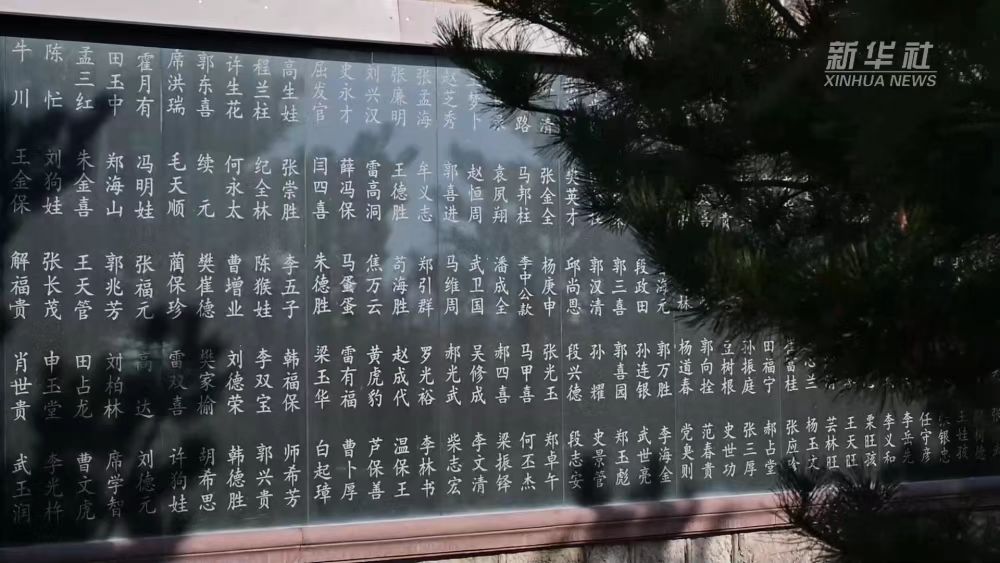 新华社
XINHUA NEWS
牛川 陈忙 孟三红 田玉中 霍月有 席洪瑞 郭东喜 许生花 程兰柱 高生娃 屈发官 史永才 刘兴汉 张廉明 张孟海 赵芝秀
王金保 刘狗娃 朱金喜 郑海山 冯明娃 毛天顺 续元 何永太 纪全林 张崇胜 闫四喜 薛冯保 雷高洞 王德胜 牟义志 郭喜进 赵恒周 袁夙翔 马邦柱 张金全 樊英才
解福贵 张长茂 王天管 郭兆芳 张福元 蔺保珍 樊崔德 曹增业 陈猴娃 李五子 朱德胜 马蛋蛋 焦万云 苟海胜 郑引群 马维周 武卫国 潘成全 李中公款 杨庚申 邱尚恩 郭汉清 郭三喜 段政田
肖世贵 申玉堂 田占龙 刘柏林 高达 雷双喜 樊家榆 刘德荣 李双宝 韩福保 梁玉华 雷有福 黄虎豹 赵成代 罗光裕 郝光武 吴修成 郝四喜 马甲喜 张光玉 段兴德 孙耀 郭喜园 孙连银 郭万胜 杨道春 郭向拴 豆树根 孙振庭 田福宁
武玉润 李光杵 曹文虎 席学智 刘德元 许狗娃 胡希思 韩德胜 郭兴贵 师希芳 白起璋 曹卜厚 芦保善 温保王 李林书 柴志宏 李文清 梁振铎 何丕杰 郑卓午 段志安 史景管 郑玉彪 武世亮 李海金 党臾则 范春贵 史世功 张三厚 郝占堂 杨玉文 芸林旺 王天旺 栗旺孩 李义和 李岳先 任守彦